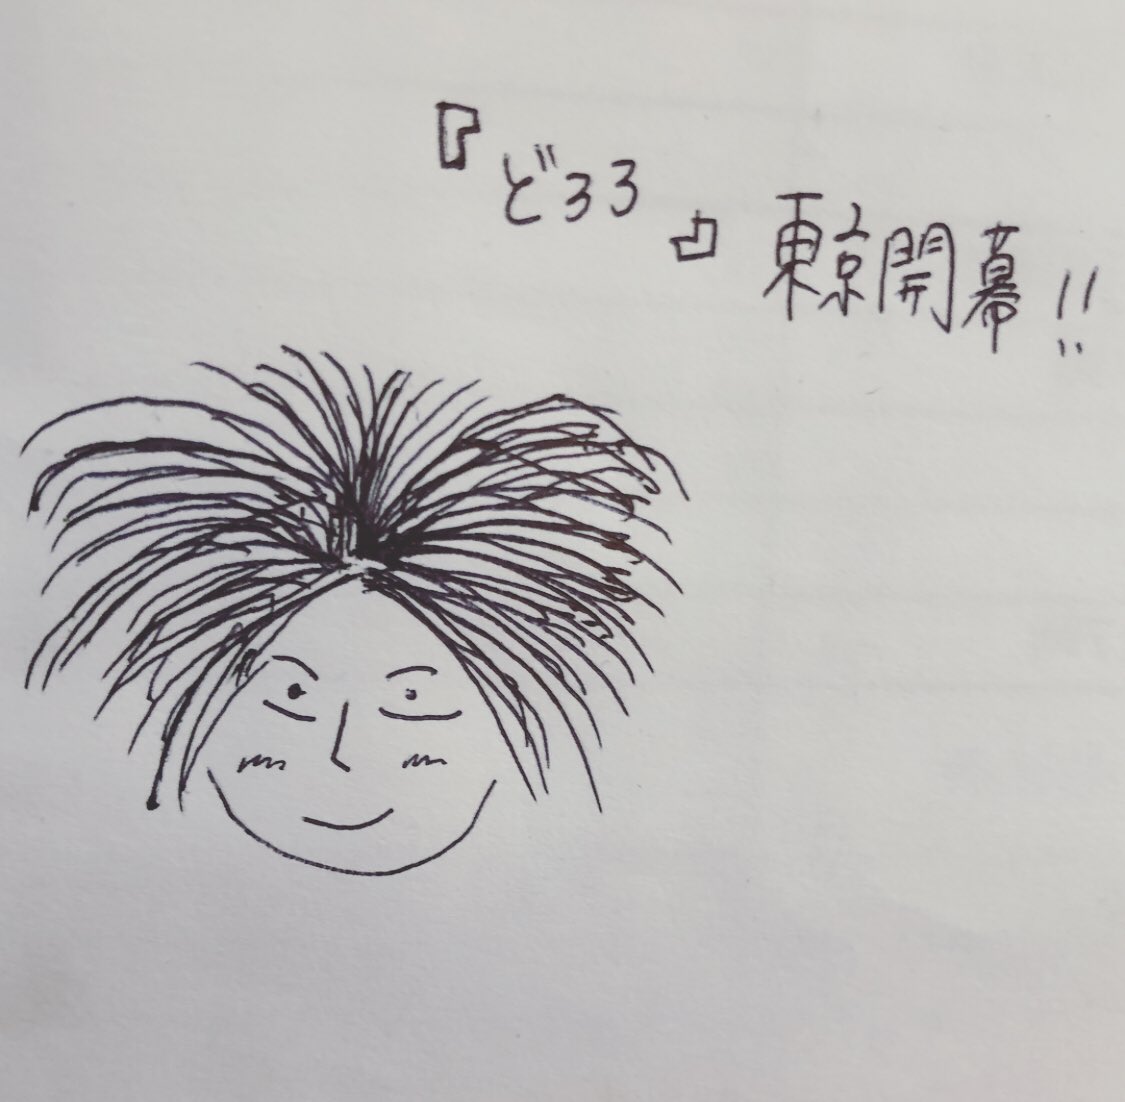 『どろろ』東京開幕!!